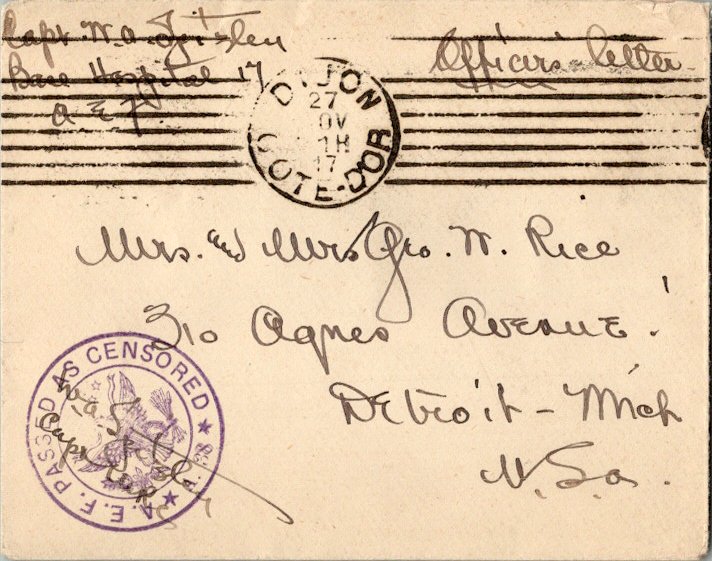 Capt. W. A.
Base Hospital 17
A E F
Officers' Letter
DIJON
27
OV
1H
17
COTE-D'OR
Mrs. and Mrs Geo. W. Rice
310 Agnes Avenue.
Detroit - Mich
U.S.a.
A.E.F. PASSED AS CENSORED
W. a.
Capt